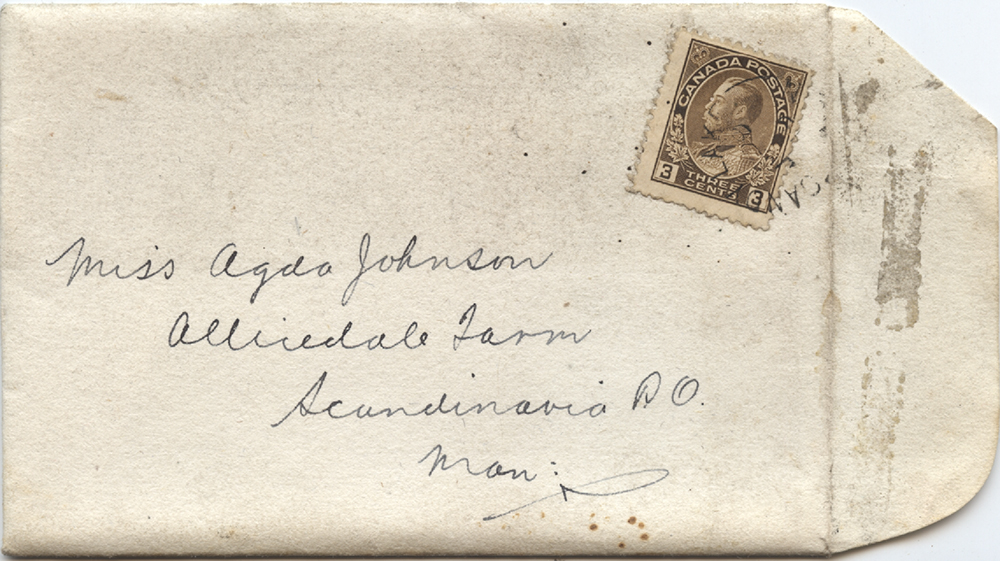 CANADA POSTAGE
3 THREE CENTS 3
SCAN
Miss Agda Johnson
Alliedale Farm
Scandinavia P.O.
Man: